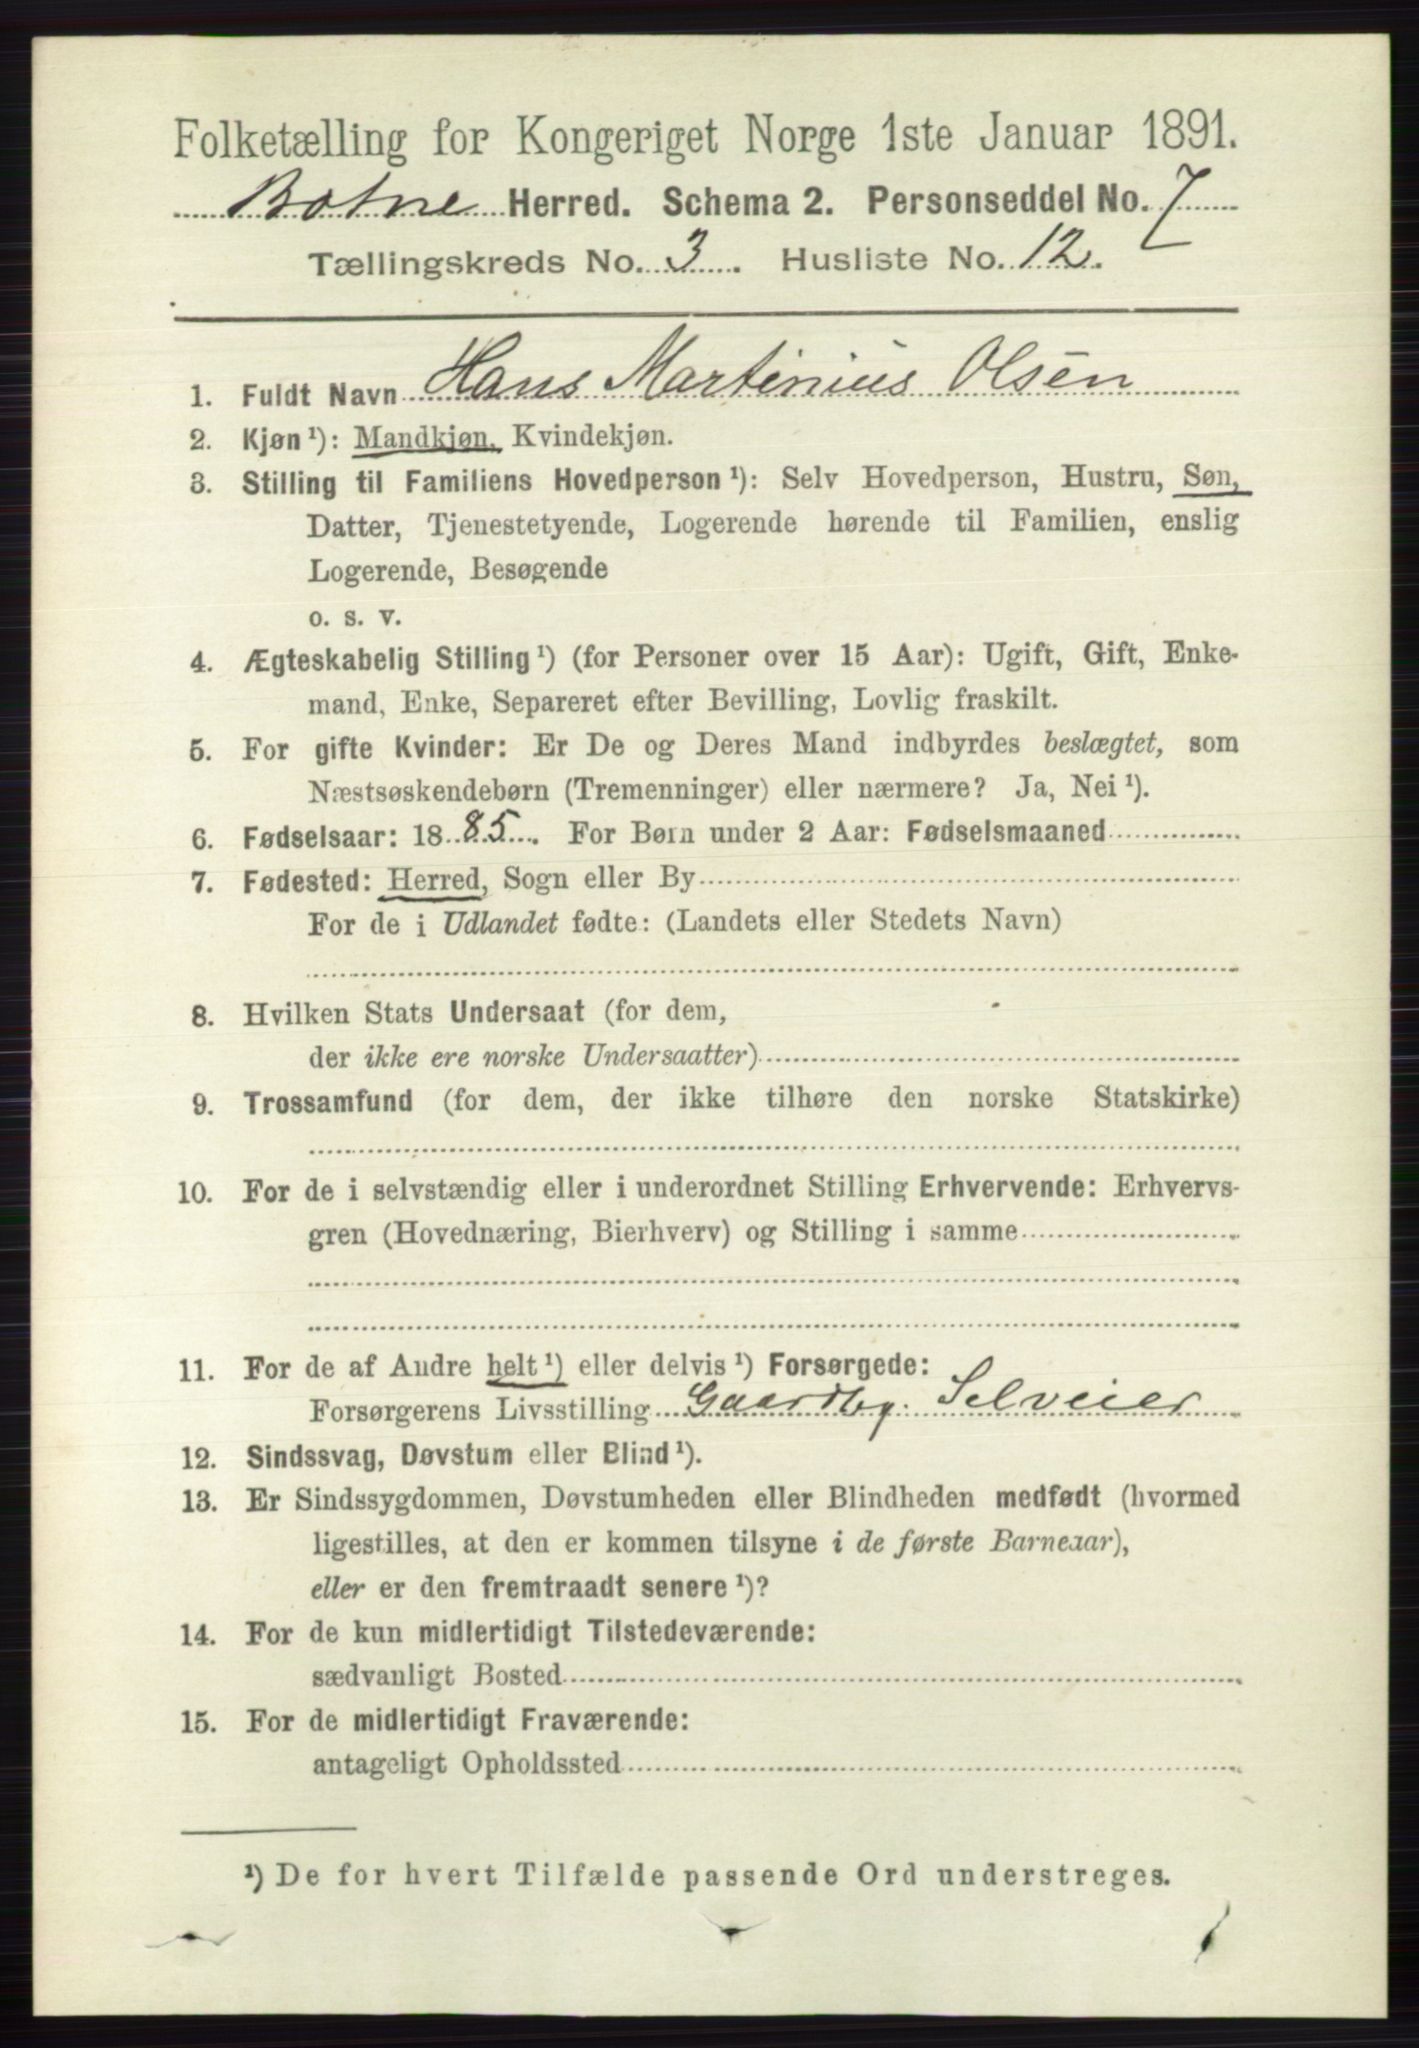 Folketælling for Kongeriget Norge 1ste Januar 1891.
Botne Herred. Schema 2. Personseddel No. 7
Tællingskreds No. 3. Husliste No. 12.
1. Fuldt Navn Hans Martinius Olsen
2. Kjøn¹): Mandkjøn, Kvindekjøn.
3. Stilling til Familiens Hovedperson¹): Selv Hovedperson, Hustru, Søn,
Datter, Tjenestetyende, Logerende hørende til Familien, enslig
Logerende, Besøgende
o. s. v.
4. Ægteskabelig Stilling¹) (for Personer over 15 Aar): Ugift, Gift, Enke-
mand, Enke, Separeret efter Bevilling, Lovlig fraskilt.
5. For gifte Kvinder: Er De og Deres Mand indbyrdes beslægtet, som
Næstsøskendebørn (Tremenninger) eller nærmere? Ja, Nei¹).
6. Fødselsaar: 1885. For Børn under 2 Aar: Fødselsmaaned
7. Fødested: Herred, Sogn eller By
For de i Udlandet fødte: (Landets eller Stedets Navn)
8. Hvilken Stats Undersaat (for dem,
der ikke ere norske Undersaatter)
9. Trossamfund (for dem, der ikke tilhøre den norske Statskirke)
10. For de i selvstændig eller i underordnet Stilling Erhvervende: Erhvervs-
gren (Hovednæring, Bierhverv) og Stilling i samme
11. For de af Andre helt¹) eller delvis¹) Forsørgede:
Forsørgerens Livsstilling Gaardbr. Selveier
12. Sindssvag, Døvstum eller Blind¹).
13. Er Sindssygdommen, Døvstumheden eller Blindheden medfødt (hvormed
ligestilles, at den er kommen tilsyne i de første Barneaar),
eller er den fremtraadt senere¹)?
14. For de kun midlertidigt Tilstedeværende:
sædvanligt Bosted
15. For de midlertidigt Fraværende:
antageligt Opholdssted
¹) De for hvert Tilfælde passende Ord understreges.